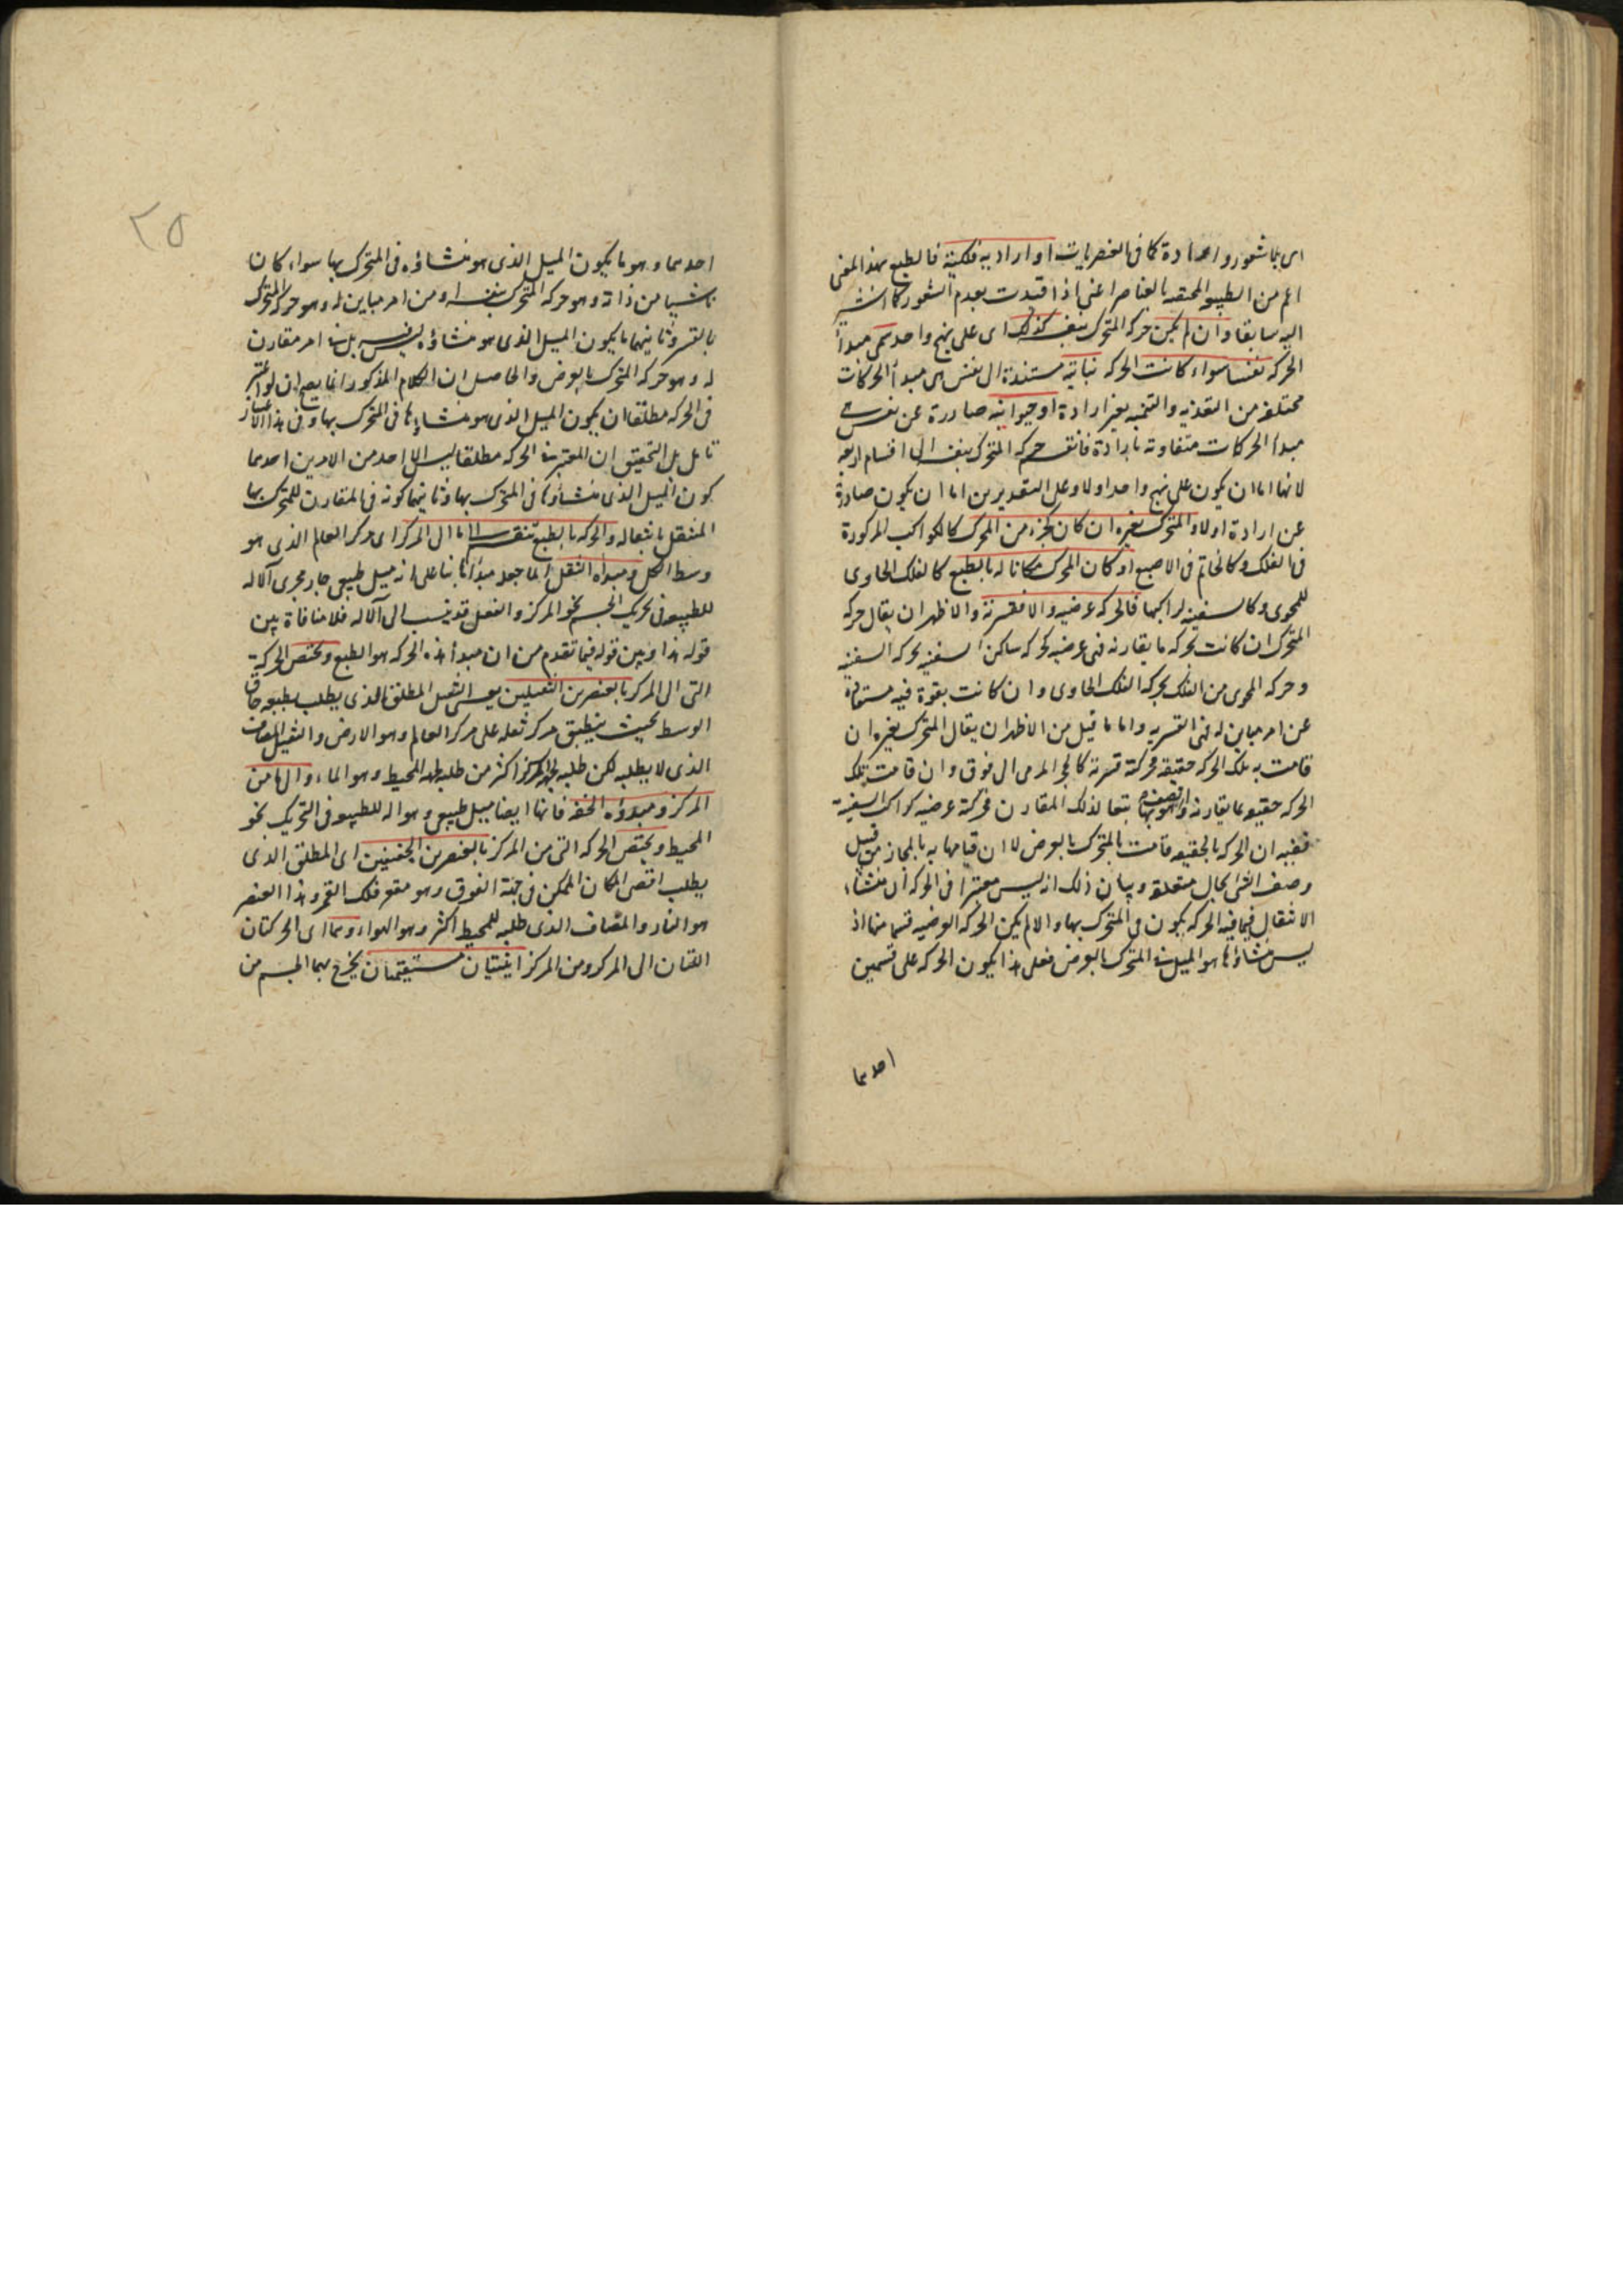 اى بلا شعور وارادة كما فى العنصريات او ارادية فلكية فالطبع بهذا المعنى
اعم من الطبيعة المختصة بالعناصر اعنى اذا قيدت بعدم الشعور كما اشير
اليه سابقا وان لم يكن حركة المتحرك بنفسه كذلك اى على نهج واحد سمى مبدأ
الحركة نفسا سواء كانت الحركة نباتية مستندة الى نفس هى مبدأ الحركات
مختلفة من التغذية والتنمية بغير ارادة او حيوانية صادرة عن نفس
مبدأ الحركات متفاوتة بارادة فانقسم حركة المتحرك بنفسه الى اقسام اربعة
لانها اما ان يكون على نهج واحد اولا وعلى التقديرين اما ان يكون صادرة
عن ارادة اولا والمتحرك بغيره ان كان كجزء من المحرك كالكواكب المركوزة
فى الفلك وكالخاتم فى الاصبع او كان المحرك مكانا له بالطبع كالفلك الحاوى
للمحوى وكالسفينة لراكبها فالحركة عرضية والا فقسرية والاظهر ان يقال حركة
المتحرك ان كانت بحركة ما يقارنه فهى عرضية كحركة ساكن السفينة بحركة السفينة
وحركة المحوى من الفلك بحركة الفلك الحاوى وان كانت بقوة فيه مستفادة
عن امر مباين له فهى القسرية واما ما قيل من الاظهر ان يقال المتحرك بغيره ان
قامت به تلك الحركة حقيقة فحركته قسرية كالحجر المرمى الى فوق وان قامت تلك
الحركة حقيقة بما يقارنه واتصف هو بها تبعا لذلك المقارن فحركته عرضية كراكب السفينة
ففيه ان الحركة بالحقيقة قامت بالمتحرك بالعرض لا ان قيامها به بالمجاز من قبيل
وصف الشئ بحال متعلقه وبيان ذلك انه ليس معتبرا فى الحركة ان منشاء
الانتقال فيما فيه الحركة يكون فى المتحرك بها والا لم يكن الحركة العرضية قسما منها اذ
ليس منشاؤها هو الميل فى المتحرك بالعرض فعلى هذا يكون الحركة على قسمين
احدهما
٢٥
احدهما وهو ما يكون الميل الذى هو منشاؤه فى المتحرك بها سواء كان
ناشيا من ذاته وهو حركة المتحرك بنفسه او من امر مباين له وهو حركة المتحرك
بالقسر وثانيهما ما يكون الميل الذى هو منشاؤه ليس فيه بل فى امر مقارن
له وهو حركة المتحرك بالعرض والحاصل ان الكلام المذكور انما يصح ان لو اعتبر
فى الحركة مطلقا ان يكون الميل الذى هو منشاؤها فى المتحرك بها وفى هذا الاعتبار
تامل بل التحقيق ان المعتبر فى الحركة مطلقا ليس الا احد من الامرين احدهما
كون الميل الذى منشاؤها فى المتحرك بها وثانيهما كونه فى المقارن للمتحرك بها
المنتقل بانتقاله والحركة بالطبع تنقسم الى ما الى المركز اى مركز العالم الذى هو
وسط الكل ومبداه الثقل انما جعله مبدأ بناء على انه ميل طبيعى جار مجرى آلالة
للطبيعة فى تحريك الجسم نحو المركز والفعل قد ينسب الى آلالة فلا منافاة بين
قوله هذا وبين قوله فيما تقدم من ان مبدأ هذه الحركة هو الطبع ويختص الحركة
التى الى المركز بالعنصرين الثقيلين يعنى الثقيل المطلق الذى يطلب بطبعه حاق
الوسط بحيث ينطبق مركز ثقله على مركز العالم وهو الارض والثقيل المضاف
الذى لا يطلبه لكن طلبه لجهة المركز اكثر من طلبه لجهة المحيط وهو الماء والى ما من
المركز ومبدؤه الخفة فانها ايضا ميل طبيعى وهو الة للطبيعة فى التحريك نحو
المحيط ويختص الحركة التى من المركز بالعنصرين الخفيفين اى المطلق الذى
يطلب اقصى المكان الممكن فى جهة الفوق وهو مقعر فلك القمر وهذا العنصر
هو النار والمضاف الذى طلبه للمحيط اكثر وهو الهواء وهما اى الحركتان
اللتان الى المركز ومن المركز اينيتان مستقيمتان يخرج بهما الجسم من